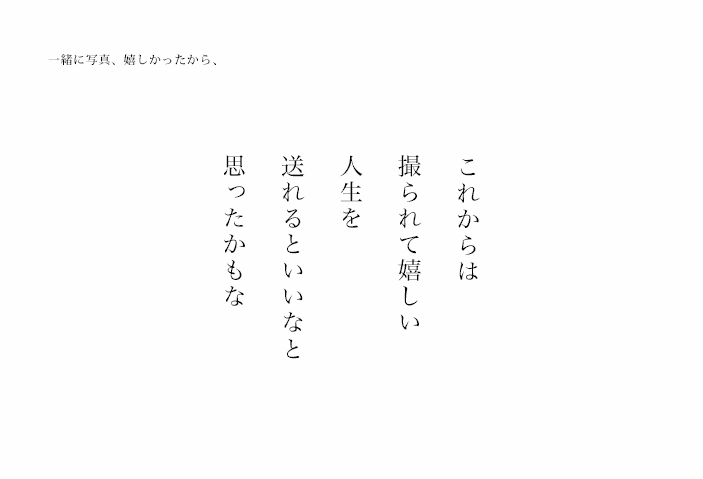 一緒に写真、嬉しかったから、
これからは
撮られて嬉しい
人生を
送れるといいなと
思ったかもな